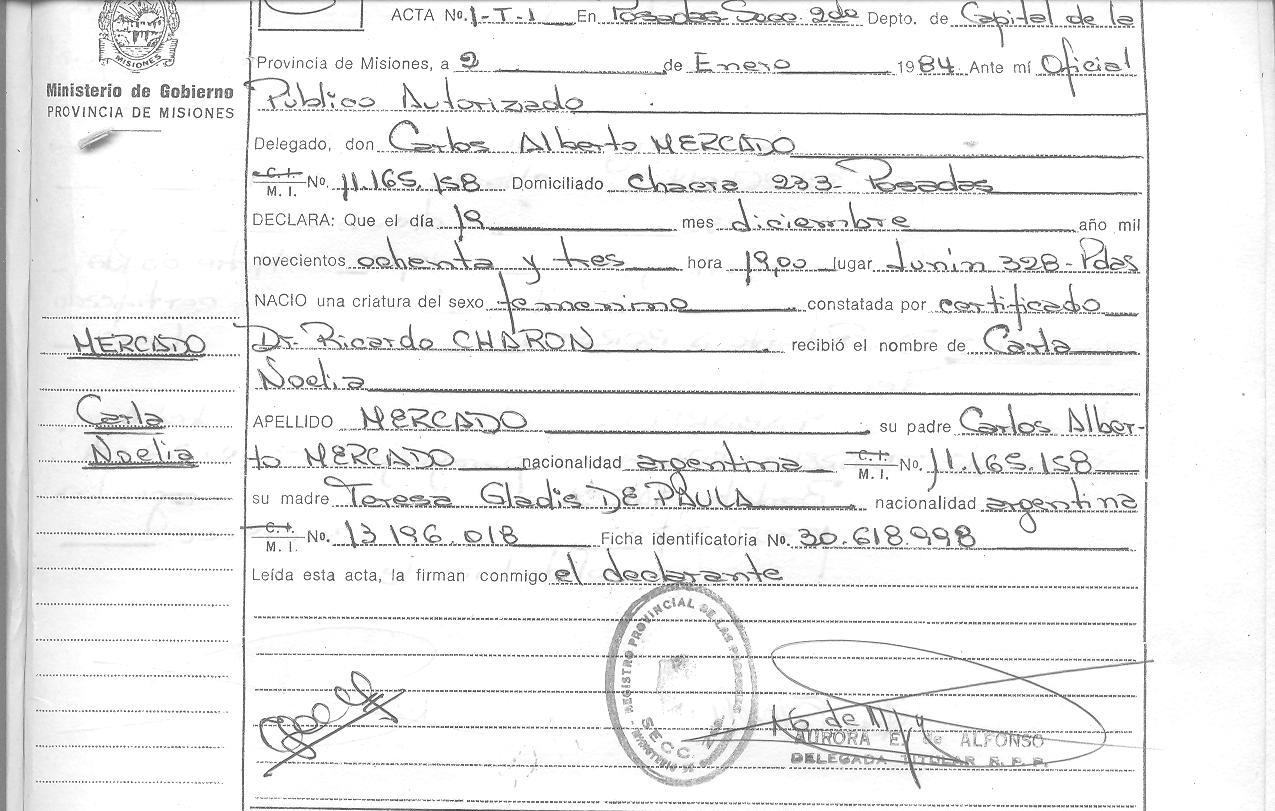 ACTA No. 1-T-1 En Posadas Secc 2da Depto. de Capital de la
MISIONES
Provincia de Misiones, a 2 de Enero 1984 Ante mí Oficial
Ministerio de Gobierno
PROVINCIA DE MISIONES
Público Autorizado
Delegado, don Carlos Alberto MERCADO
C. I.
M. I. No. 11.165.158 Domiciliado Chacra 233- Posadas
DECLARA: Que el día 19 mes diciembre año mil
novecientos ochenta y tres hora 19,00 lugar Junin 328-Pdas
NACIO una criatura del sexo femenino constatada por certificado
MERCADO
Dr. Ricardo CHARON recibió el nombre de Carla
Noelia
Carla
Noelia
APELLIDO MERCADO su padre Carlos Alber-
to MERCADO nacionalidad argentina C. I. M. I. No. 11.165.158
su madre Teresa Gladis DE PAULA nacionalidad argentina
C. I.
M. I. No. 13 196.018 Ficha identificatoria No. 30.618.998
Leída esta acta, la firman conmigo el declarante
REGISTRO PROVINCIAL DE LAS PERSONAS
SECC.
AURORA E. de ALFONSO
DELEGADA TITULAR R. P. P.